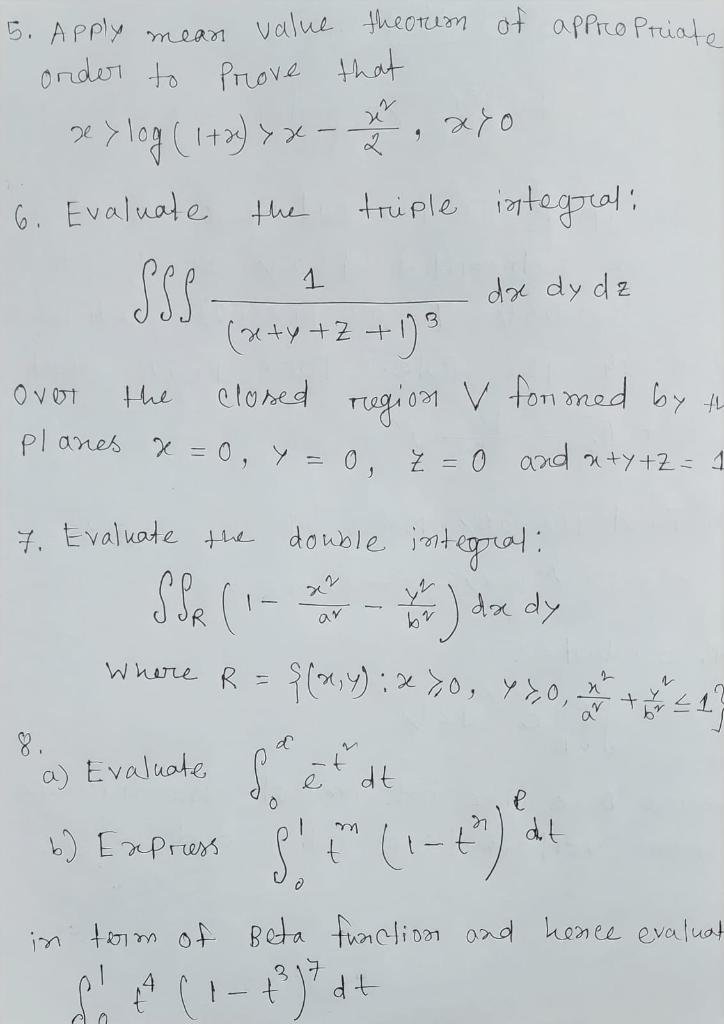 5. Apply mean value theorem of appropriate
order to prove that
x > log(1+x) > x - x²/2, x>0
6. Evaluate the triple integral:
∭ 1/(x+y+z+1)³ dx dy dz
Over the closed region V formed by
planes x = 0, y = 0, z = 0 and x+y+z = 1
7. Evaluate the double integral:
∬R (1 - x²/a² - y²/b²) dx dy
Where R = {(x,y): x ≥ 0, y ≥ 0, x²/a² + y²/b² ≤ 1}
8.
a) Evaluate ∫₀^∞ e^(-t²) dt
b) Express ∫₀¹ t^m (1-t^n)^p dt
in term of Beta function and hence evaluat
∫₀¹ t⁴ (1-t³)⁷ dt